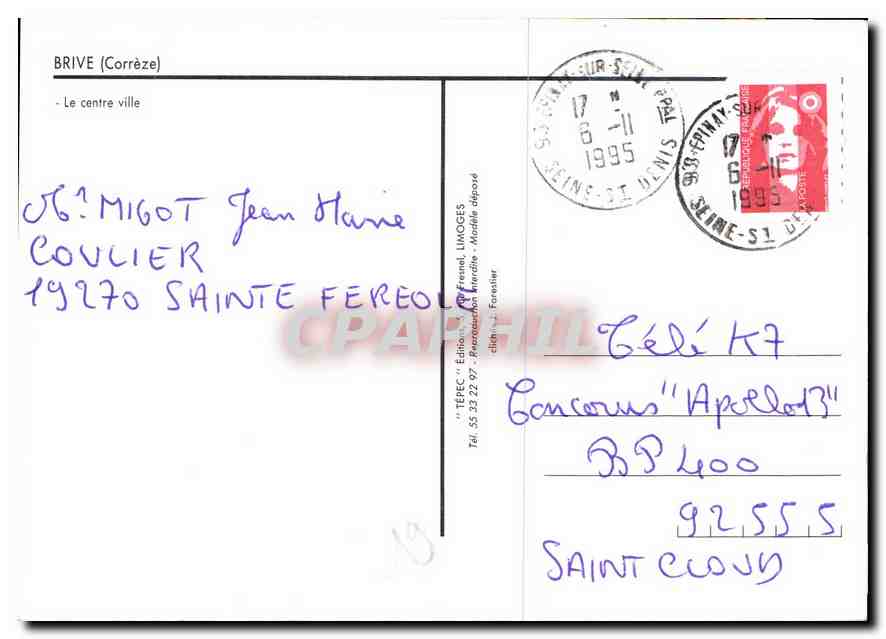 BRIVE (Corrèze)
- Le centre ville
Mr MIGOT Jean Marie
COULIER
19270 SAINTE FEREOLE
" TÉPEC " Éditions, Fresnel, LIMOGES
Tél. 55 33 22 97 - Reproduction interdite - Modèle déposé
clichés J. Forestier
CPAPHIL
93-EPINAY-SUR-SEINE PPAL
17 H
6 -11
1995
SEINE-ST DENIS
RÉPUBLIQUE FRANÇAISE
LA POSTE
93-EPINAY-SUR
17 H
6 -11
1995
SEINE-ST DEN
Télé K7
Concours "Apollo 13"
BP 400
92555
SAINT CLOUD
19